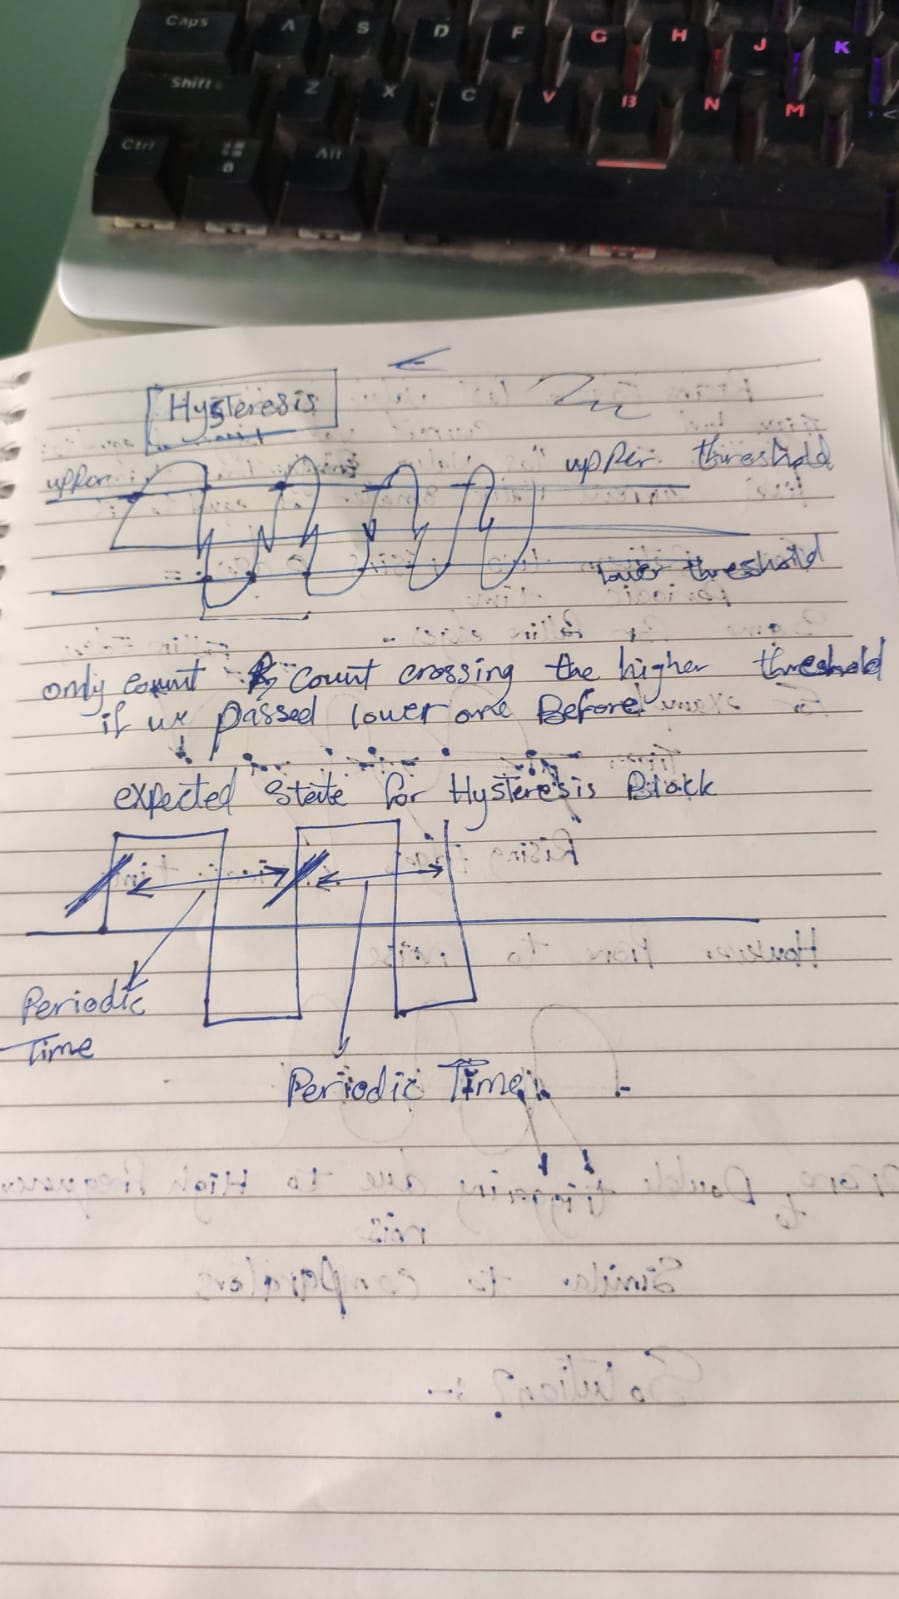 Caps A S D F G H J K
Shift Z X C V B N M <
Ctrl Alt
Hysteresis
upper
upper threshold
lower threshold
only count count crossing the higher threshold
if we passed lower one Before
expected state for Hysteresis Block
Periodic
Time
Periodic Time